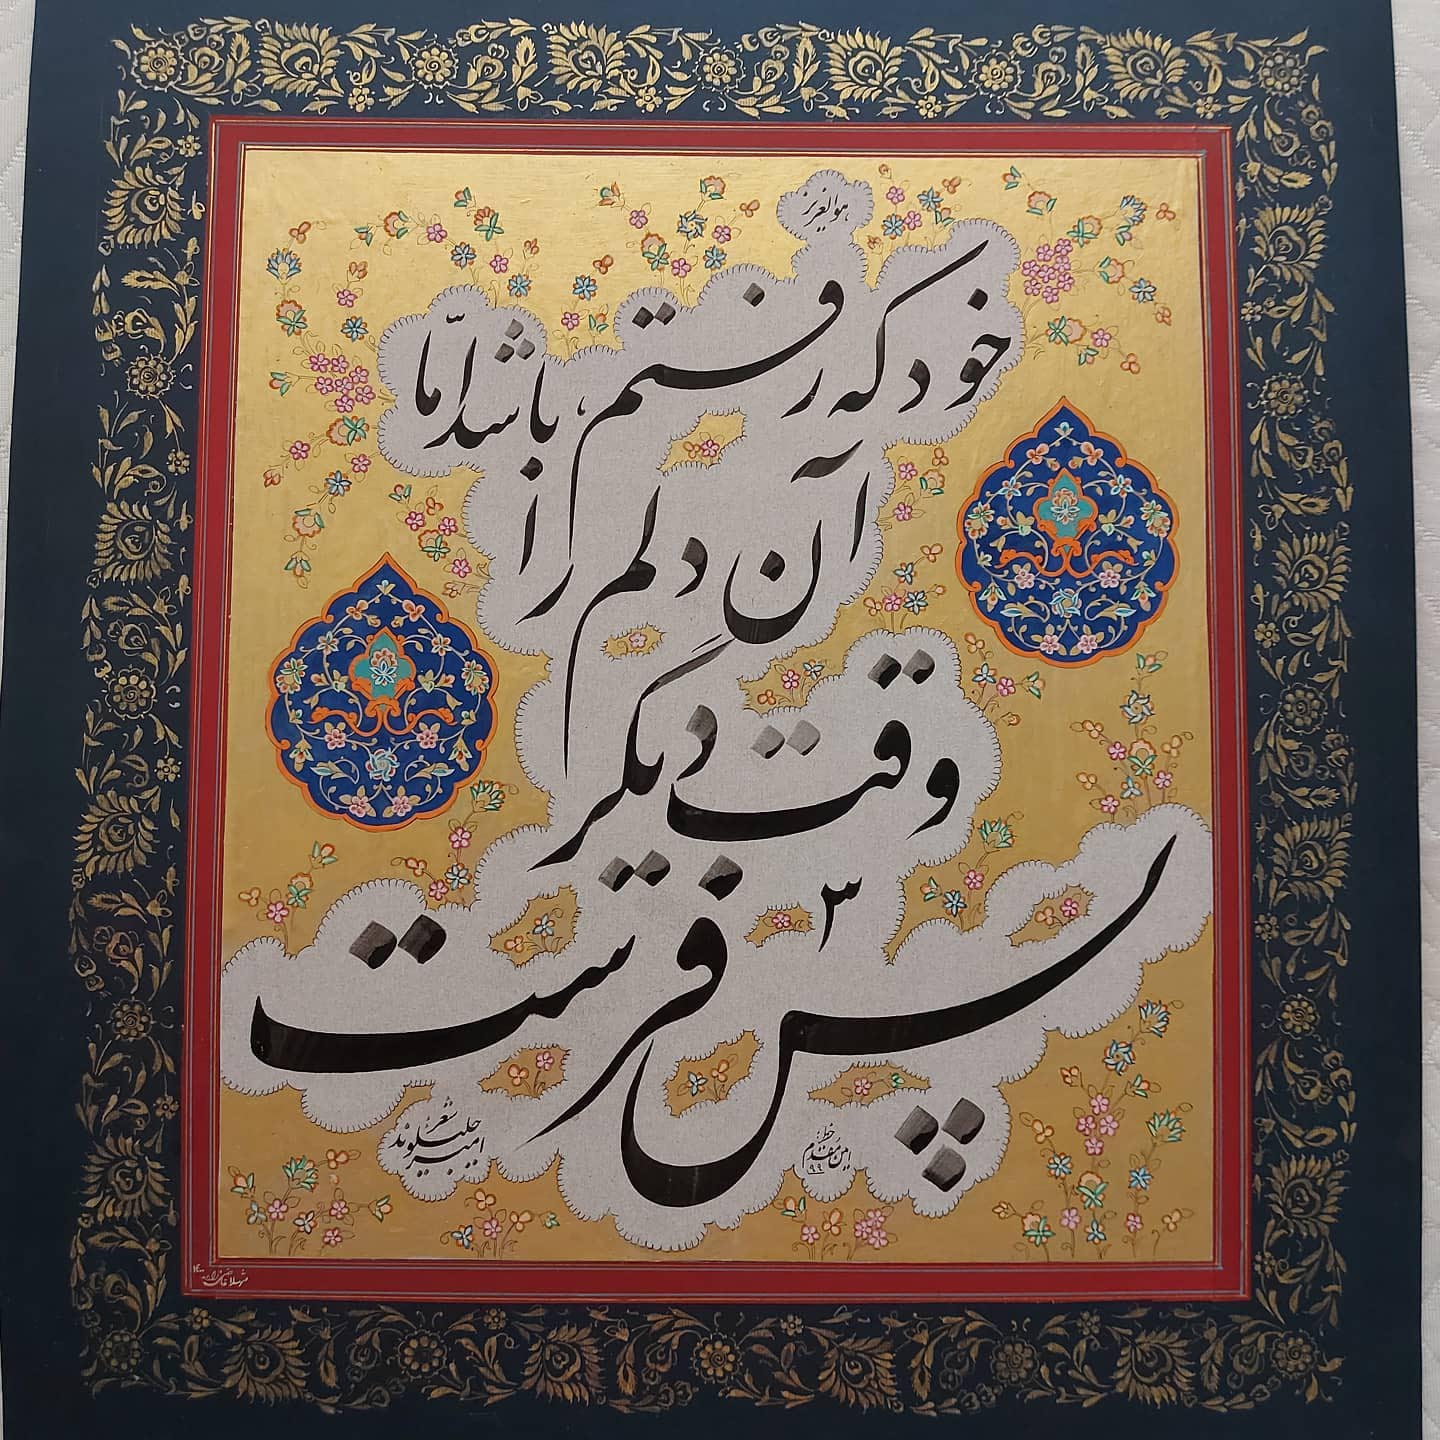 هوالعزیز
خود که رفتم، باشد امّا
آن دلم را
وقت دیگر
پس فرست
شعر
جلیلوند
امیر
خط:
امین مقدم
۹۹
شهلا
۱۴۰۰